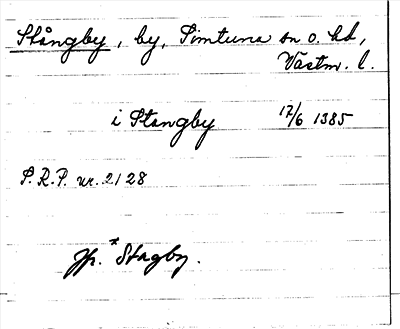 Stångby, by, Simtuna sn o. hd,
Västm. l.
i Stangby 17/6 1385
S.R.P. nr. 2128
Jfr. *Stagby.